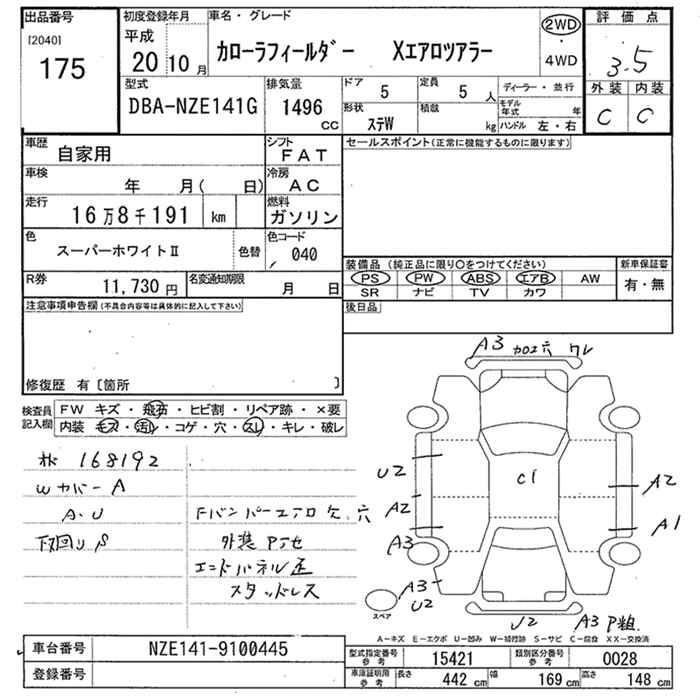 出品番号
[2040]
175
初度登録年月
平成
20 10 月
車名・グレード
カローラフィールダー Xエアロツアラー
2WD
・
4WD
評価点
3.5
外装 内装
C C
型式
DBA-NZE141G
排気量
1496
CC
ドア
5
定員
5 人
形状
ステW
積載
kg
ディーラー・並行
モデル
年式 年
ハンドル 左・右
車歴
自家用
シフト
FAT
車検
年 月( 日)
冷房
AC
走行
16万8千191 km
燃料
ガソリン
色
スーパーホワイトⅡ
色替
色コード
040
R券
11,730 円
名変通知期限
月 日
セールスポイント(正常に機能するものに限ります)
装備品 (純正品に限り○をつけてください)
PS PW ABS エアB AW
SR ナビ TV カワ
新車保証書
有・無
後日品
注意事項申告欄(不具合内容等は具体的に記入して下さい)
修復歴 有〔箇所 〕
検査員
記入欄
FW キズ・飛石・ヒビ割・リペア跡・×要
内装 キズ・汚レ・コゲ・穴・スレ・キレ・破レ
168192
Wカバー A
A・U
下回りS
Fバンパーエアロ欠、穴
外装Pテセ
エンドパネル歪
スタッドレス
A3 カロエ穴 ワレ
U2
A2
A3
C1
A2
A1
A3
U2
スペア
U2
A3 P粗
A-キズ E-エクボ U-凹み W-補修跡 S-サビ C-腐食 XX-交換済
車台番号
NZE141-9100445
登録番号
型式指定番号
参考
15421
類別区分番号
参考
0028
車庫証明用
参考
長さ
442 cm
幅
169 cm
高さ
148 cm